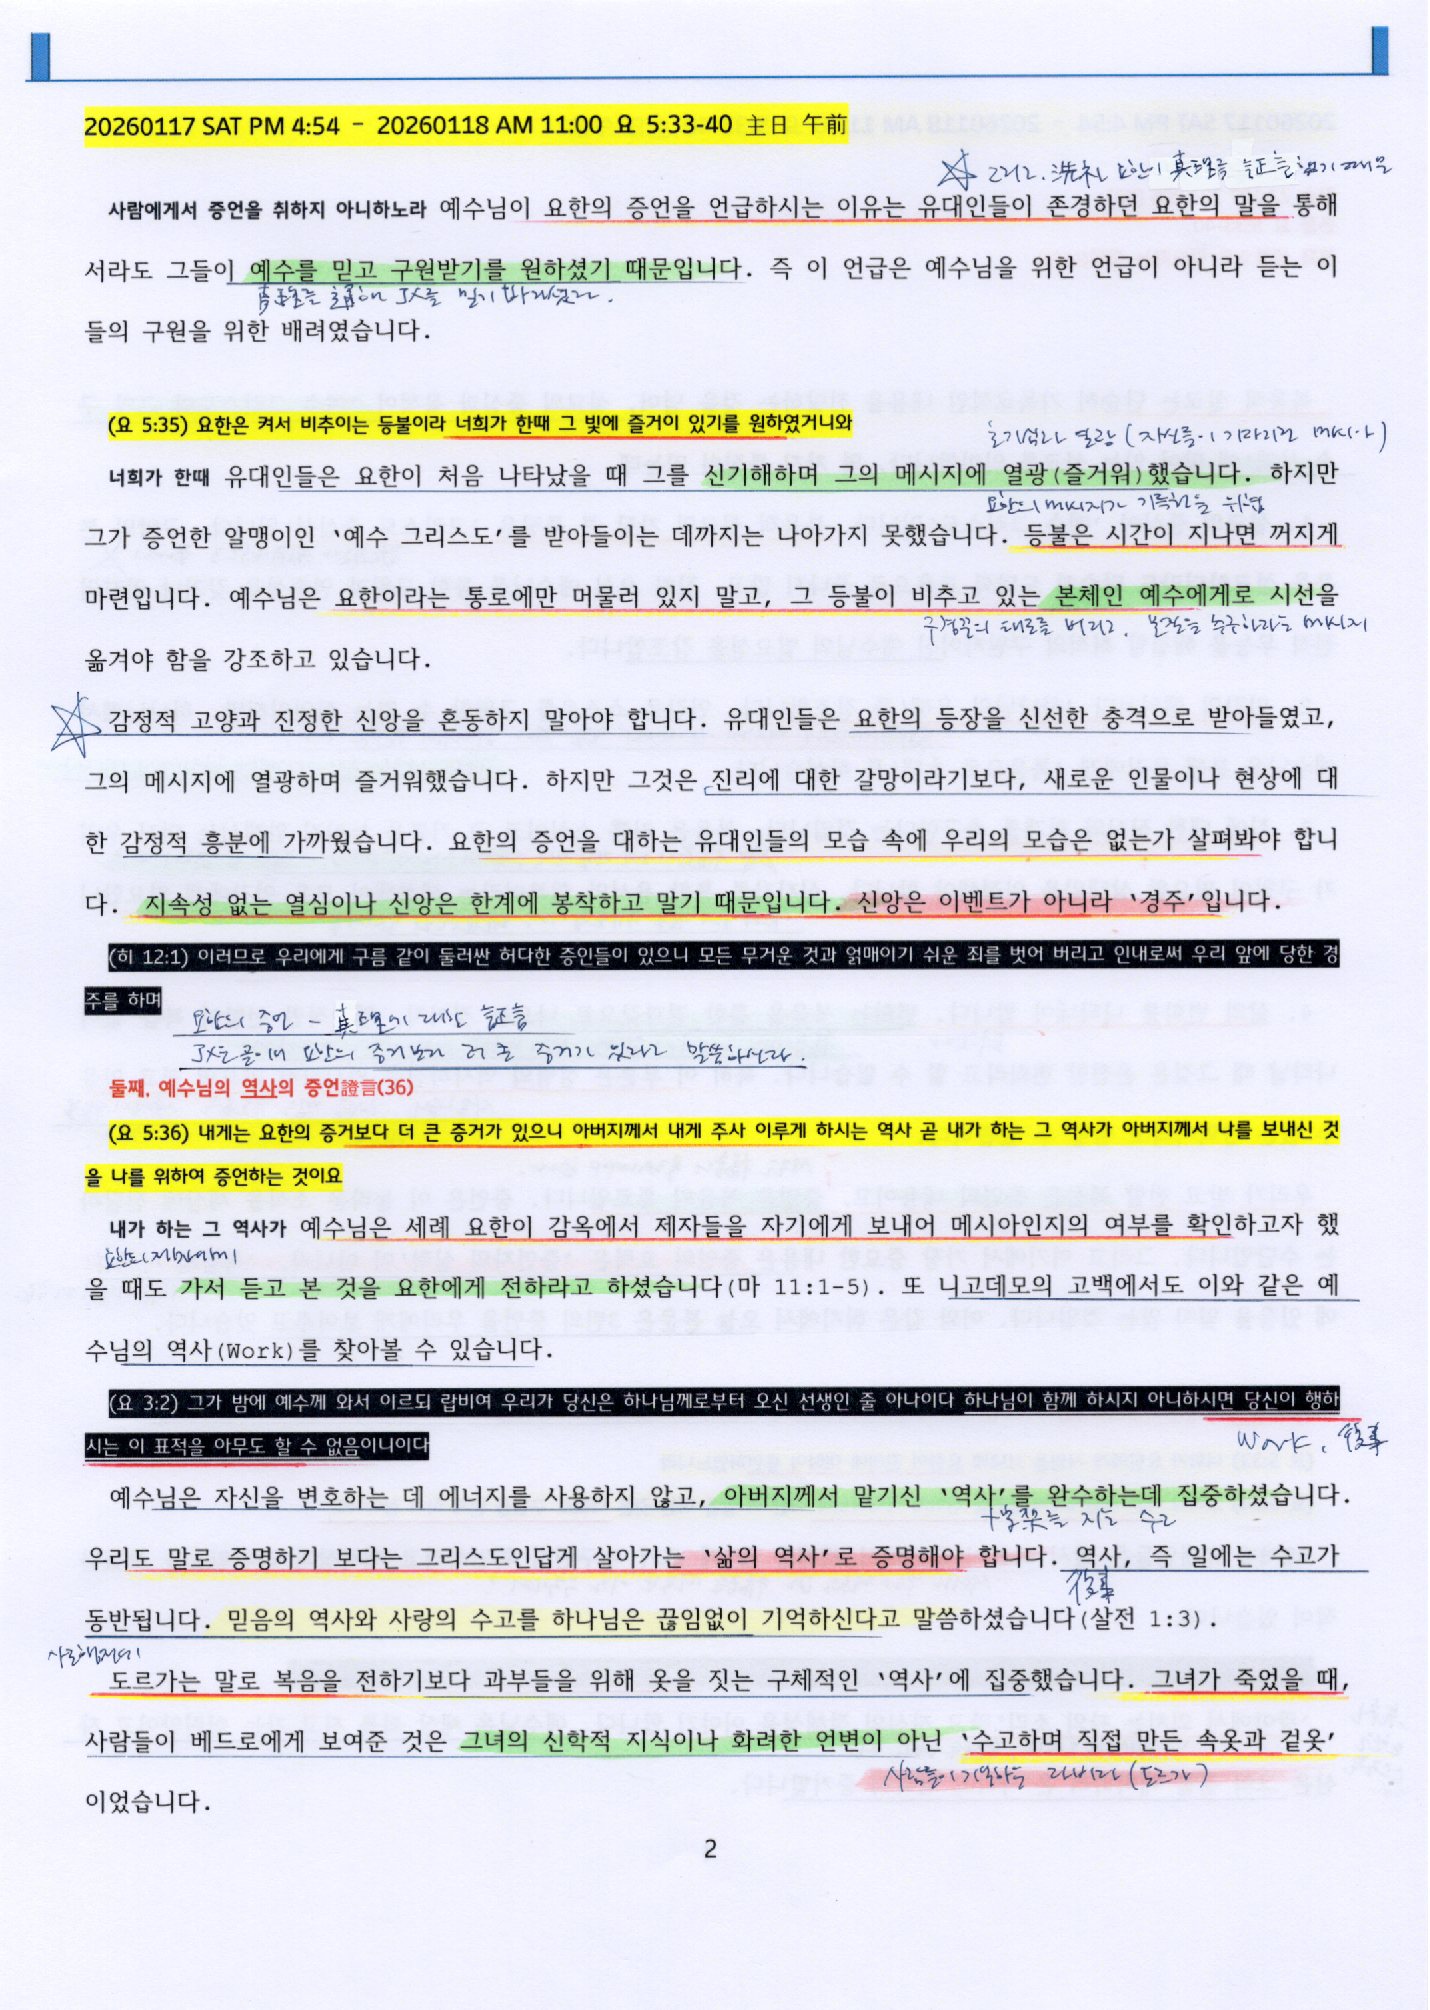 20260117 SAT PM 4:54 – 20260118 AM 11:00 요 5:33-40 主日 午前
그리고, 洗礼 요한이 真理를 証言했기 때문
사람에게서 증언을 취하지 아니하노라 예수님이 요한의 증언을 언급하시는 이유는 유대인들이 존경하던 요한의 말을 통해
서라도 그들이 예수를 믿고 구원받기를 원하셨기 때문입니다. 즉 이 언급은 예수님을 위한 언급이 아니라 듣는 이
真理를 通해 JX를 믿기 바라셨다.
들의 구원을 위한 배려였습니다.
(요 5:35) 요한은 켜서 비추이는 등불이라 너희가 한때 그 빛에 즐거이 있기를 원하였거니와
열광 (자신들이 기다리던 메시아)
너희가 한때 유대인들은 요한이 처음 나타났을 때 그를 신기해하며 그의 메시지에 열광(즐거워)했습니다. 하지만
요한의 메시지가
그가 증언한 알맹이인 ‘예수 그리스도’를 받아들이는 데까지는 나아가지 못했습니다. 등불은 시간이 지나면 꺼지게
마련입니다. 예수님은 요한이라는 통로에만 머물러 있지 말고, 그 등불이 비추고 있는 본체인 예수에게로 시선을
구경꾼의 태도를 버리고, 본질을 추구하라는 메시지
옮겨야 함을 강조하고 있습니다.
감정적 고양과 진정한 신앙을 혼동하지 말아야 합니다. 유대인들은 요한의 등장을 신선한 충격으로 받아들였고,
그의 메시지에 열광하며 즐거워했습니다. 하지만 그것은 진리에 대한 갈망이라기보다, 새로운 인물이나 현상에 대
한 감정적 흥분에 가까웠습니다. 요한의 증언을 대하는 유대인들의 모습 속에 우리의 모습은 없는가 살펴봐야 합니
다. 지속성 없는 열심이나 신앙은 한계에 봉착하고 말기 때문입니다. 신앙은 이벤트가 아니라 ‘경주’입니다.
(히 12:1) 이러므로 우리에게 구름 같이 둘러싼 허다한 증인들이 있으니 모든 무거운 것과 얽매이기 쉬운 죄를 벗어 버리고 인내로써 우리 앞에 당한 경
주를 하며
요한의 증언 – 真理에 대한 証言
JX는 요한의 증거보다 더 큰 증거가 있다고 말씀하신다.
둘째, 예수님의 역사의 증언證言(36)
(요 5:36) 내게는 요한의 증거보다 더 큰 증거가 있으니 아버지께서 내게 주사 이루게 하시는 역사 곧 내가 하는 그 역사가 아버지께서 나를 보내신 것
을 나를 위하여 증언하는 것이요
내가 하는 그 역사가 예수님은 세례 요한이 감옥에서 제자들을 자기에게 보내어 메시아인지의 여부를 확인하고자 했
요한의 제자에게
을 때도 가서 듣고 본 것을 요한에게 전하라고 하셨습니다(마 11:1-5). 또 니고데모의 고백에서도 이와 같은 예
수님의 역사(Work)를 찾아볼 수 있습니다.
(요 3:2) 그가 밤에 예수께 와서 이르되 랍비여 우리가 당신은 하나님께로부터 오신 선생인 줄 아나이다 하나님이 함께 하시지 아니하시면 당신이 행하
시는 이 표적을 아무도 할 수 없음이니이다
Work, 役事
예수님은 자신을 변호하는 데 에너지를 사용하지 않고, 아버지께서 맡기신 ‘역사’를 완수하는데 집중하셨습니다.
十字架를 지는 수고
우리도 말로 증명하기 보다는 그리스도인답게 살아가는 ‘삶의 역사’로 증명해야 합니다. 역사, 즉 일에는 수고가
役事
동반됩니다. 믿음의 역사와 사랑의 수고를 하나님은 끊임없이 기억하신다고 말씀하셨습니다(살전 1:3).
도르가는 말로 복음을 전하기보다 과부들을 위해 옷을 짓는 구체적인 ‘역사’에 집중했습니다. 그녀가 죽었을 때,
사람들이 베드로에게 보여준 것은 그녀의 신학적 지식이나 화려한 언변이 아닌 ‘수고하며 직접 만든 속옷과 겉옷’
사람들이 기억하는 다비다 (도르가)
이었습니다.
2